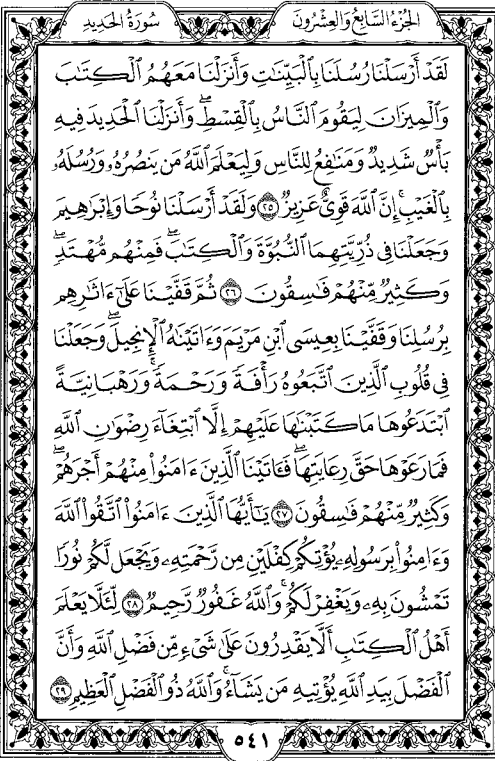 الجزء السابع والعشرون
سورة الحديد
لَقَدْ أَرْسَلْنَا رُسُلَنَا بِالْبَيِّنَاتِ وَأَنزَلْنَا مَعَهُمُ الْكِتَابَ
وَالْمِيزَانَ لِيَقُومَ النَّاسُ بِالْقِسْطِ ۖ وَأَنزَلْنَا الْحَدِيدَ فِيهِ
بَأْسٌ شَدِيدٌ وَمَنَافِعُ لِلنَّاسِ وَلِيَعْلَمَ اللَّهُ مَن يَنصُرُهُ وَرُسُلَهُ
بِالْغَيْبِ ۚ إِنَّ اللَّهَ قَوِيٌّ عَزِيزٌ ٢٥ وَلَقَدْ أَرْسَلْنَا نُوحًا وَإِبْرَاهِيمَ
وَجَعَلْنَا فِي ذُرِّيَّتِهِمَا النُّبُوَّةَ وَالْكِتَابَ ۖ فَمِنْهُم مُّهْتَدٍ ۖ
وَكَثِيرٌ مِّنْهُمْ فَاسِقُونَ ٢٦ ثُمَّ قَفَّيْنَا عَلَىٰ ءَاثَارِهِم
بِرُسُلِنَا وَقَفَّيْنَا بِعِيسَى ابْنِ مَرْيَمَ وَءَاتَيْنَاهُ الْإِنجِيلَ ۖ وَجَعَلْنَا
فِي قُلُوبِ الَّذِينَ اتَّبَعُوهُ رَأْفَةً وَرَحْمَةً ۚ وَرَهْبَانِيَّةً
ابْتَدَعُوهَا مَا كَتَبْنَاهَا عَلَيْهِمْ إِلَّا ابْتِغَاءَ رِضْوَانِ اللَّهِ
فَمَا رَعَوْهَا حَقَّ رِعَايَتِهَا ۖ فَـَٔاتَيْنَا الَّذِينَ ءَامَنُوا مِنْهُمْ أَجْرَهُمْ ۖ
وَكَثِيرٌ مِّنْهُمْ فَاسِقُونَ ٢٧ يَا أَيُّهَا الَّذِينَ ءَامَنُوا اتَّقُوا اللَّهَ
وَءَامِنُوا بِرَسُولِهِ يُؤْتِكُمْ كِفْلَيْنِ مِن رَّحْمَتِهِ وَيَجْعَل لَّكُمْ نُورًا
تَمْشُونَ بِهِ وَيَغْفِرْ لَكُمْ ۚ وَاللَّهُ غَفُورٌ رَّحِيمٌ ٢٨ لِّئَلَّا يَعْلَمَ
أَهْلُ الْكِتَابِ أَلَّا يَقْدِرُونَ عَلَىٰ شَيْءٍ مِّن فَضْلِ اللَّهِ وَأَنَّ
الْفَضْلَ بِيَدِ اللَّهِ يُؤْتِيهِ مَن يَشَاءُ ۚ وَاللَّهُ ذُو الْفَضْلِ الْعَظِيمِ ٢٩
٥٤١